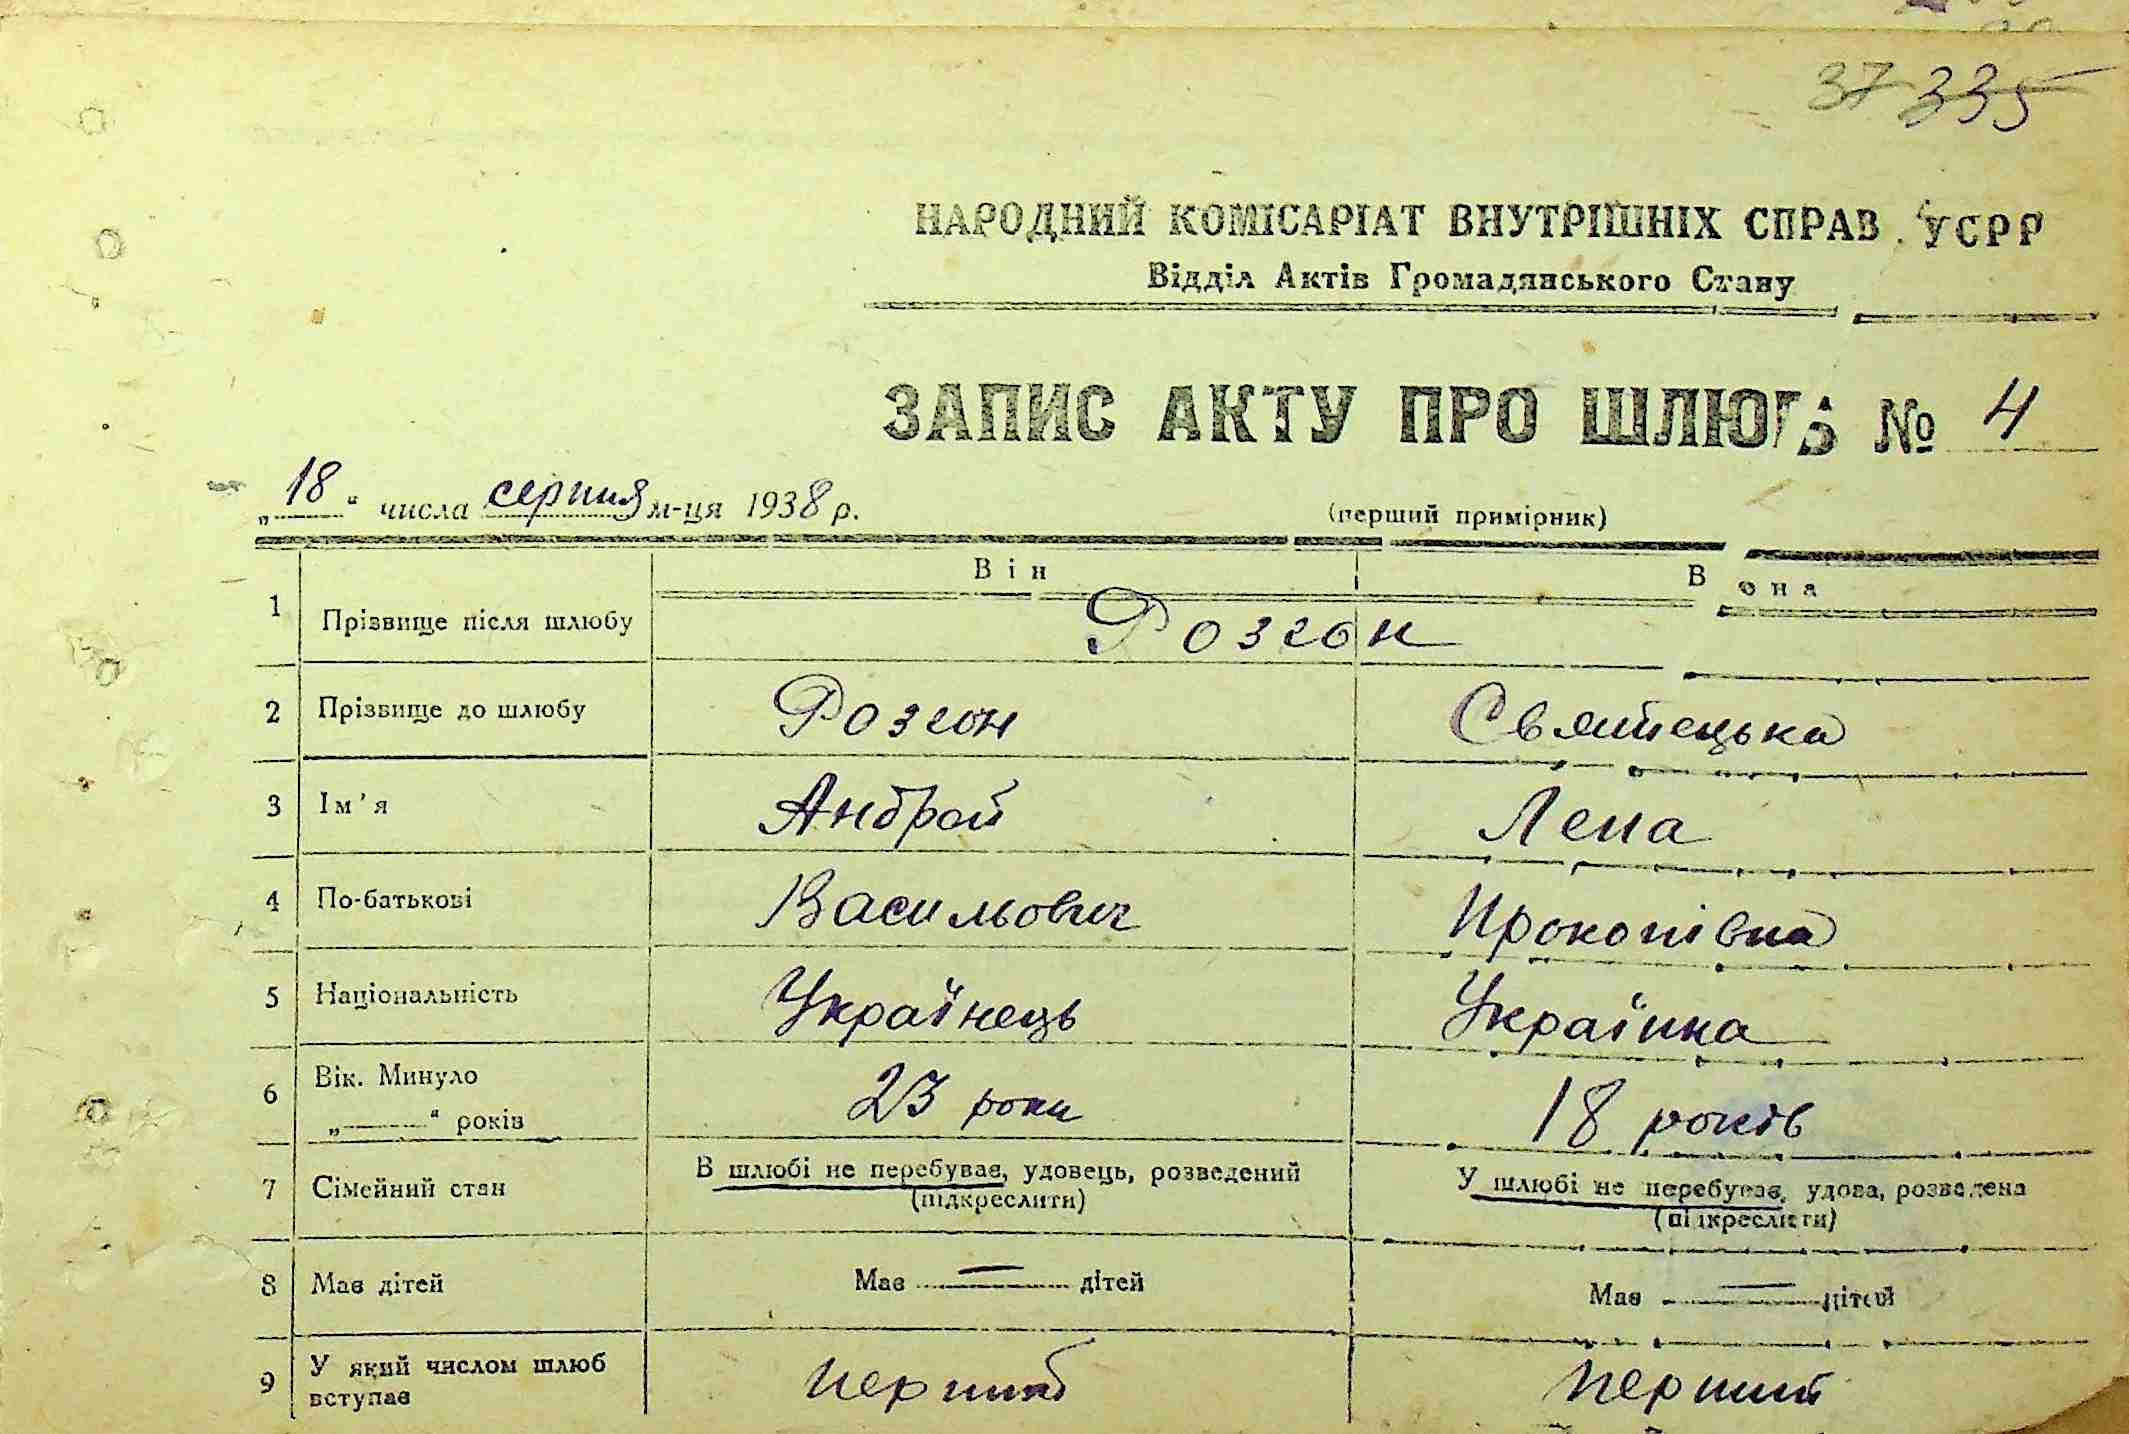 37 335
НАРОДНИЙ КОМІСАРІАТ ВНУТРІШНІХ СПРАВ УСРР
Відділ Актів Громадянського Стану
ЗАПИС АКТУ ПРО ШЛЮБ № 4
„18“ числа серпня м-ця 1938 р.
(перший примірник)
Він Вона
1 Прізвище після шлюбу Розгон
2 Прізвище до шлюбу Розгон Святецька
3 Ім'я Андрей Лена
4 По-батькові Васильович Прокопівна
5 Національність Українець Українка
6 Вік. Минуло
„——“ років 23 роки 18 років
7 Сімейний стан В шлюбі не перебуває, удовець, розведений У шлюбі не перебуває, удова, розведена
(підкреслити) (підкреслити)
8 Має дітей Має — дітей Має — дітей
9 У який числом шлюб
вступає перший перший